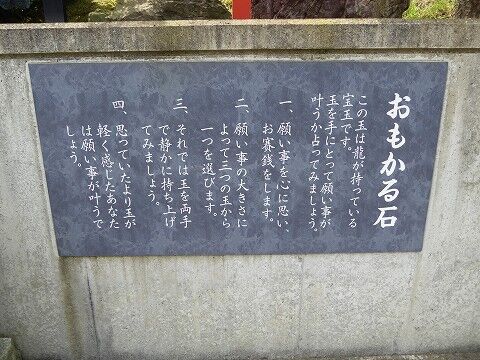 おもかる石
この玉は龍が持っている
宝玉です。
玉を手にとって願い事が
叶うか占ってみましょう。
一、願い事を心に思い、
お賽銭をします。
二、願い事の大きさに
よって三つの玉から
一つを選びます。
三、それでは玉を両手
で静かに持ち上げ
てみましょう。
四、思っていたより玉が
軽く感じたあなた
は願い事が叶うで
しょう。